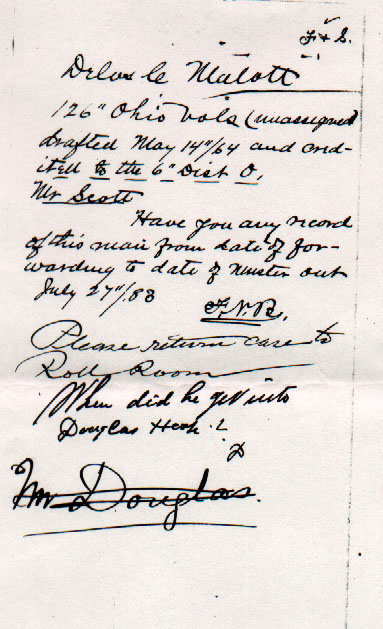 F & S.
Delos le Malott
126" Ohio Vols (unassigned
drafted May 14"/64 and cred-
ited to the 6" Dist O,
Mr Scott
Have you any record
of this man from date of for-
warding to date of muster out
July 27"/83
F.N.B.
Please return case to
Roll Room
When did he get into
Douglas Hosp. ?
D
Mr Douglas.